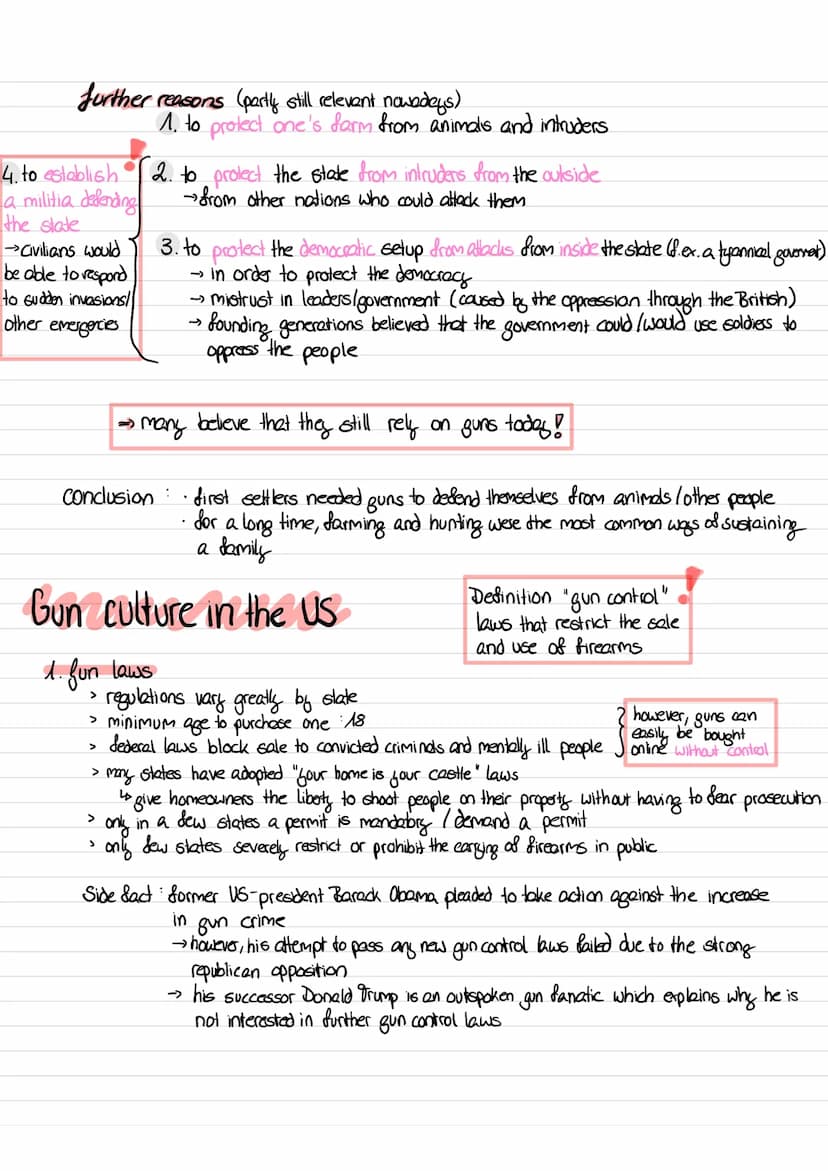 further reasons (partly still relevant nowadays)
1. to protect one's farm from animals and intruders
2. to protect the state from intruders from the outside
→ from other nations who could attack them
3. to protect the democratic setup from attacks from inside the state (f.ex. a tyannical governor)
→ in order to protect the democracy
→ mistrust in leaders/government (caused by the oppression through the British)
→ founding generations believed that the government could/would use soldiers to
oppress the people
4. to establish
a militia defending
the state
→ civilians would
be able to respond
to sudden invasions/
other emergecies
→ many believe that they still rely on guns today!
conclusion : · first settlers needed guns to defend themselves from animals/other people
· for a long time, farming and hunting were the most common ways of sustaining
a family
Gun culture in the US
Definition "gun control"
laws that restrict the sale
and use of firearms
1. Gun laws
> regulations vary greatly by state
> minimum age to purchase one : 18
> federal laws block sale to convicted criminals and mentally ill people
however, guns can
easily be bought
online without control
> many states have adopted "your home is your castle" laws
↳ give homeowners the liberty to shoot people on their property without having to fear prosecution
> only in a few states a permit is mandatory / demand a permit
> only few states severely restrict or prohibit the carrying of firearms in public
Side fact : former US-president Barack Obama pleaded to take action against the increase
in gun crime
→ however, his attempt to pass any new gun control laws failed due to the strong
republican opposition
→ his successor Donald Trump is an outspoken gun fanatic which explains why he is
not interested in further gun control laws